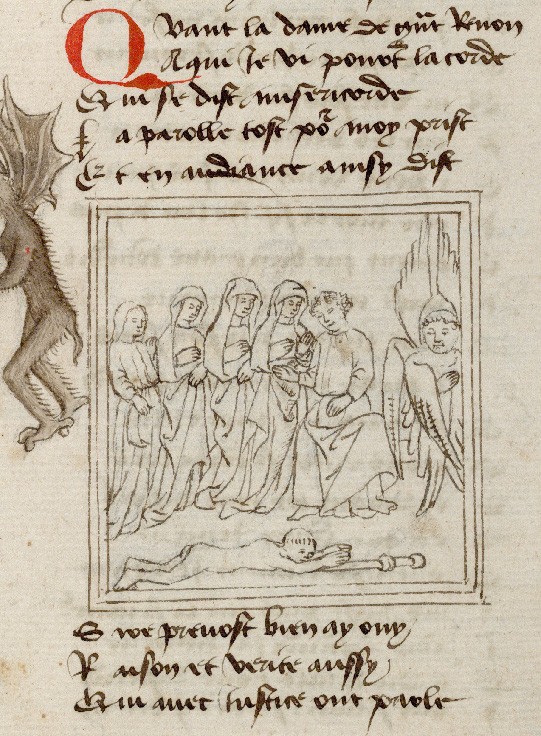 Quant la dame de grant Renon
A qui Je vi porter la corde
Qui se dist misericorde
La parolle tost por moy prist
Et en audiance ainsy dist
Sire prevost bien ay ouy
Raison et verite aussy
Qui avec Justice ont parle